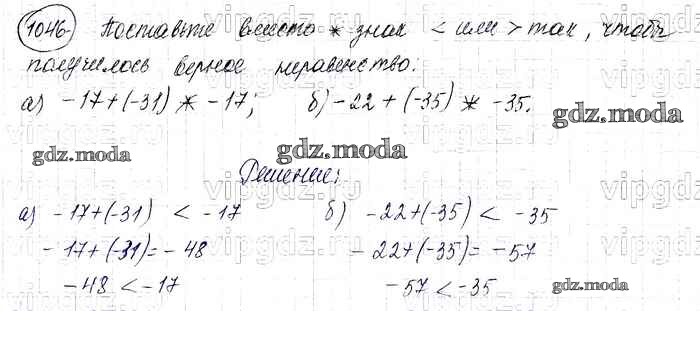 1046. Поставьте вместо * знак < или > так, чтобы
получилось верное неравенство.
а) -17+(-31) * -17; б) -22+(-35) * -35.
gdz.moda
gdz.moda
gdz.moda
Решение:
а) -17+(-31) < -17 б) -22+(-35) < -35
-17+(-31)=-48 -22+(-35)=-57
-48 < -17 -57 < -35
gdz.moda
gdz.moda